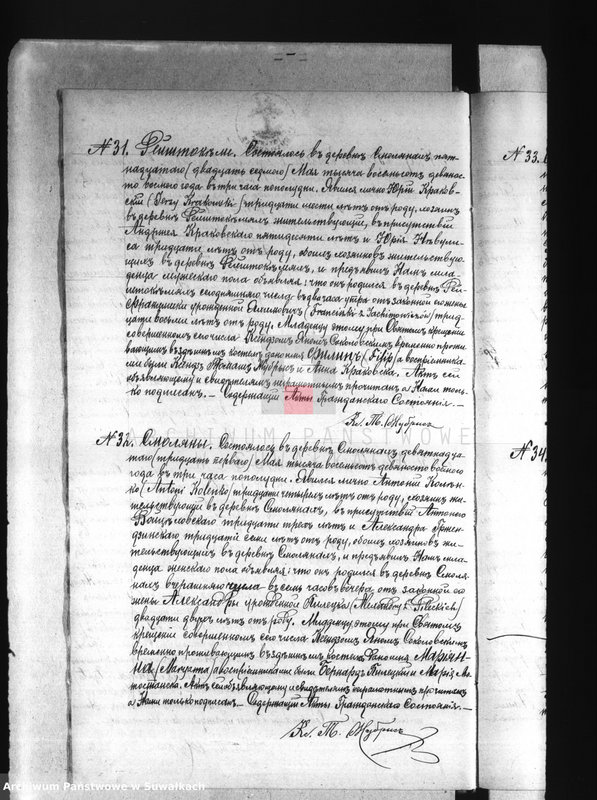 № 31. Рештокемъ. Состоялось въ деревнѣ Смолянахъ пят-
надцатаго (двадцать седьмаго) Мая тысяча восемьсотъ девянос-
то восьмого года въ три часа пополудни. Явился лично Юрій Краков-
скій (Jerzy Krakowski) тридцати шести лѣтъ отъ роду, хозяинъ
въ деревнѣ жительствующій, въ присутствіи
Андрея Краковскаго пятидесяти лѣтъ и Юрія
тридцати лѣтъ отъ роду, обоихъ хозяиновъ жительствую-
щихъ въ деревнѣ и предъявилъ Намъ мла-
денца мужескаго пола объявляя: что онъ родился въ деревнѣ Реш-
сегодняшняго числа въ два часа утра отъ законной его жены
Францишки урожденной Яхимовичъ (Franciszki z Jachimowiczów) трид-
цати восьми лѣтъ отъ роду. Младенцу этому при Святомъ крещеніи
совершенномъ сего числа Ксендзомъ Яномъ Соколовскимъ временно прожи-
вающимъ въ здѣшнемъ костелѣ дано имя Филипъ (Filip) а воспріемника-
ми были и Анна Краковска. Актъ сей
объявляющему и свидѣтелямъ неграмотнымъ прочитанъ а Нами толь-
ко подписанъ. — Содержащій Акты Гражданскаго Состоянія. —
Кс. Т. Жубрисъ
№ 32. Смоляны. Состоялось въ деревнѣ Смолянахъ девятнадца-
таго (тридцать перваго) Мая тысяча восемьсотъ девяносто восьмого
года въ три часа пополудни. Явился лично Антоній Колен-
ко (Antoni Kolenko) тридцати четырехъ лѣтъ отъ роду, хозяинъ жи-
тельствующій въ деревнѣ Смолянахъ, въ присутствіи Антонія
Войцеховскаго тридцати трехъ лѣтъ и Александра
тридцати семи лѣтъ отъ роду, обоихъ хозяиновъ жи-
тельствующихъ въ деревнѣ Смолянахъ, и предъявилъ Намъ мла-
денца женскаго пола объявляя: что онъ родился въ деревнѣ Смоля-
нахъ вчерашняго числа въ семь часовъ вечера отъ законной его
жены Александры урожденной Пилецкой z Pileckich)
двадцати двухъ лѣтъ отъ роду. Младенцу этому при Святомъ
крещеніи совершенномъ сего числа Ксендзомъ Яномъ Соколовскимъ
временно проживающимъ въ здѣшнемъ костелѣ дано имя Марьян-
на (Maryanna) а воспріемниками были Бернардъ Пилецкій и Марія
Актъ сей объявляющему и свидѣтелямъ неграмотнымъ прочитанъ
а Нами только подписанъ. — Содержащій Акты Гражданскаго Состоянія. —
Кс. Т. Жубрисъ
№ 33.
№ 34.
ARCHIWUM PAŃSTWOWE
Archiwum Państwowe w Suwałkach